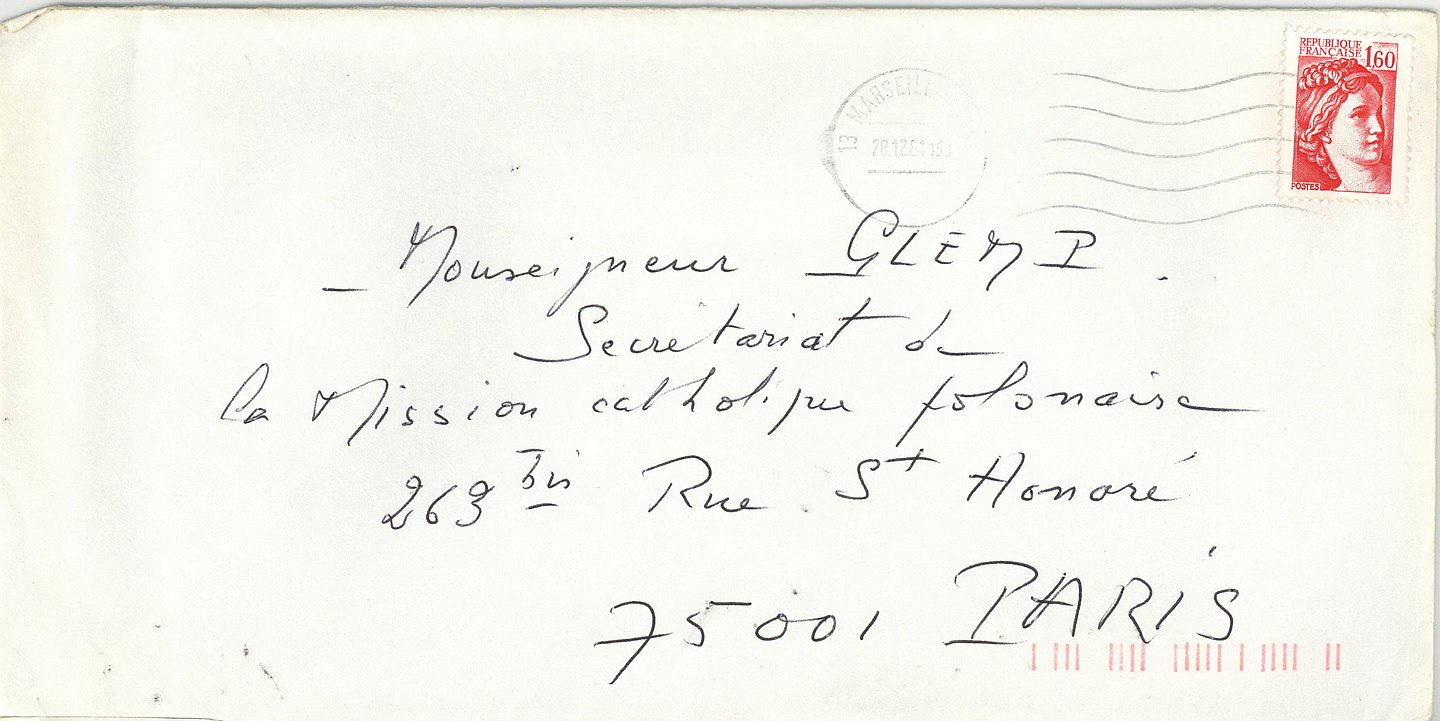 REPUBLIQUE
FRANÇAISE 1,60
POSTES
13 MARSEILLE
28.12.81
Monseigneur GLEMP.
Secrétariat de
la Mission catholique polonaise
263 bis Rue St Honoré
75001 PARIS